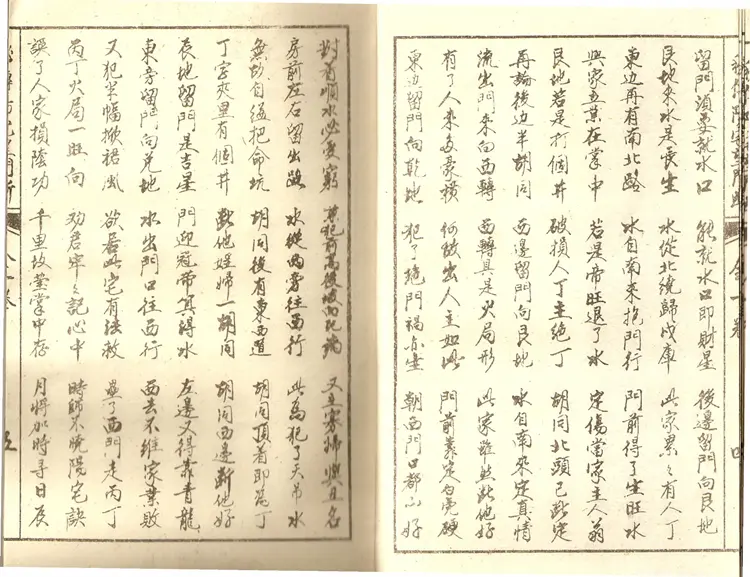 留門須要就水口 能就水口即財星 後邊留門向艮地
艮地來水是長生 水從北繞歸戌庫 此家累々有人丁
東边再有南北路 水自南來抱門行 門前得了生旺水
興家立業在掌中 若是帝旺退了水 定傷當家主人翁
艮地若是打個井 破損人丁主絶丁 胡同北頭已斷定
再論後边半胡同 西邊留門向艮地 水自南來定真情
流出門來向西轉 西轉具是火局形 此家雖然斷他好
有了人來多豪橫 何故出人主如此 門前靠定白虎硬
東边留門向乾地 犯了絶門禍亦生 朝西門口都不好
卷一 四
對看順水必受窮 犯前高後 又主寡婦與丑名
房前左右留出路 水從兩旁往西行 此為犯了天吊水
無故自縊把命坑 胡同後有東西道 胡同頂着即為丁
丁字夾里有個井 斷他婬婦一胡同 胡同西邊斷他好
辰地留門是吉星 門迎冠帶算得水 左邊又得靠青龍
東旁留門向兌地 水出門口往西行 西去不維家業敗
又犯半幅掀裙風 欲居此宅有強救 壘了西門走丙丁
丙丁火局一旺向 劝君牢々記心中 時師不曉陽宅訣
誤了人家損陰功 千里故塋掌中存 月將加時尋日辰
五